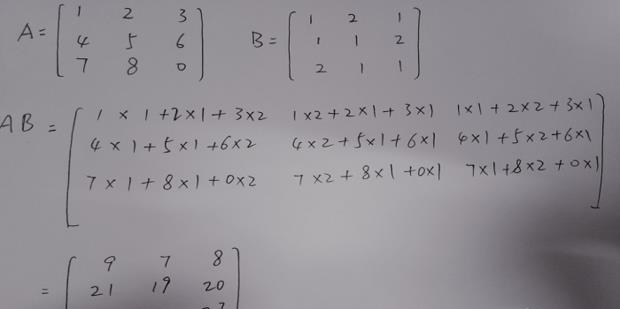 A = [ 1 2 3 B = [ 1 2 1
4 5 6 1 1 2
7 8 0 ] 2 1 1 ]
AB = [ 1 × 1 + 2 × 1 + 3 × 2 1 × 2 + 2 × 1 + 3 × 1 1 × 1 + 2 × 2 + 3 × 1
4 × 1 + 5 × 1 + 6 × 2 4 × 2 + 5 × 1 + 6 × 1 4 × 1 + 5 × 2 + 6 × 1
7 × 1 + 8 × 1 + 0 × 2 7 × 2 + 8 × 1 + 0 × 1 7 × 1 + 8 × 2 + 0 × 1 ]
= [ 9 7 8
21 19 20